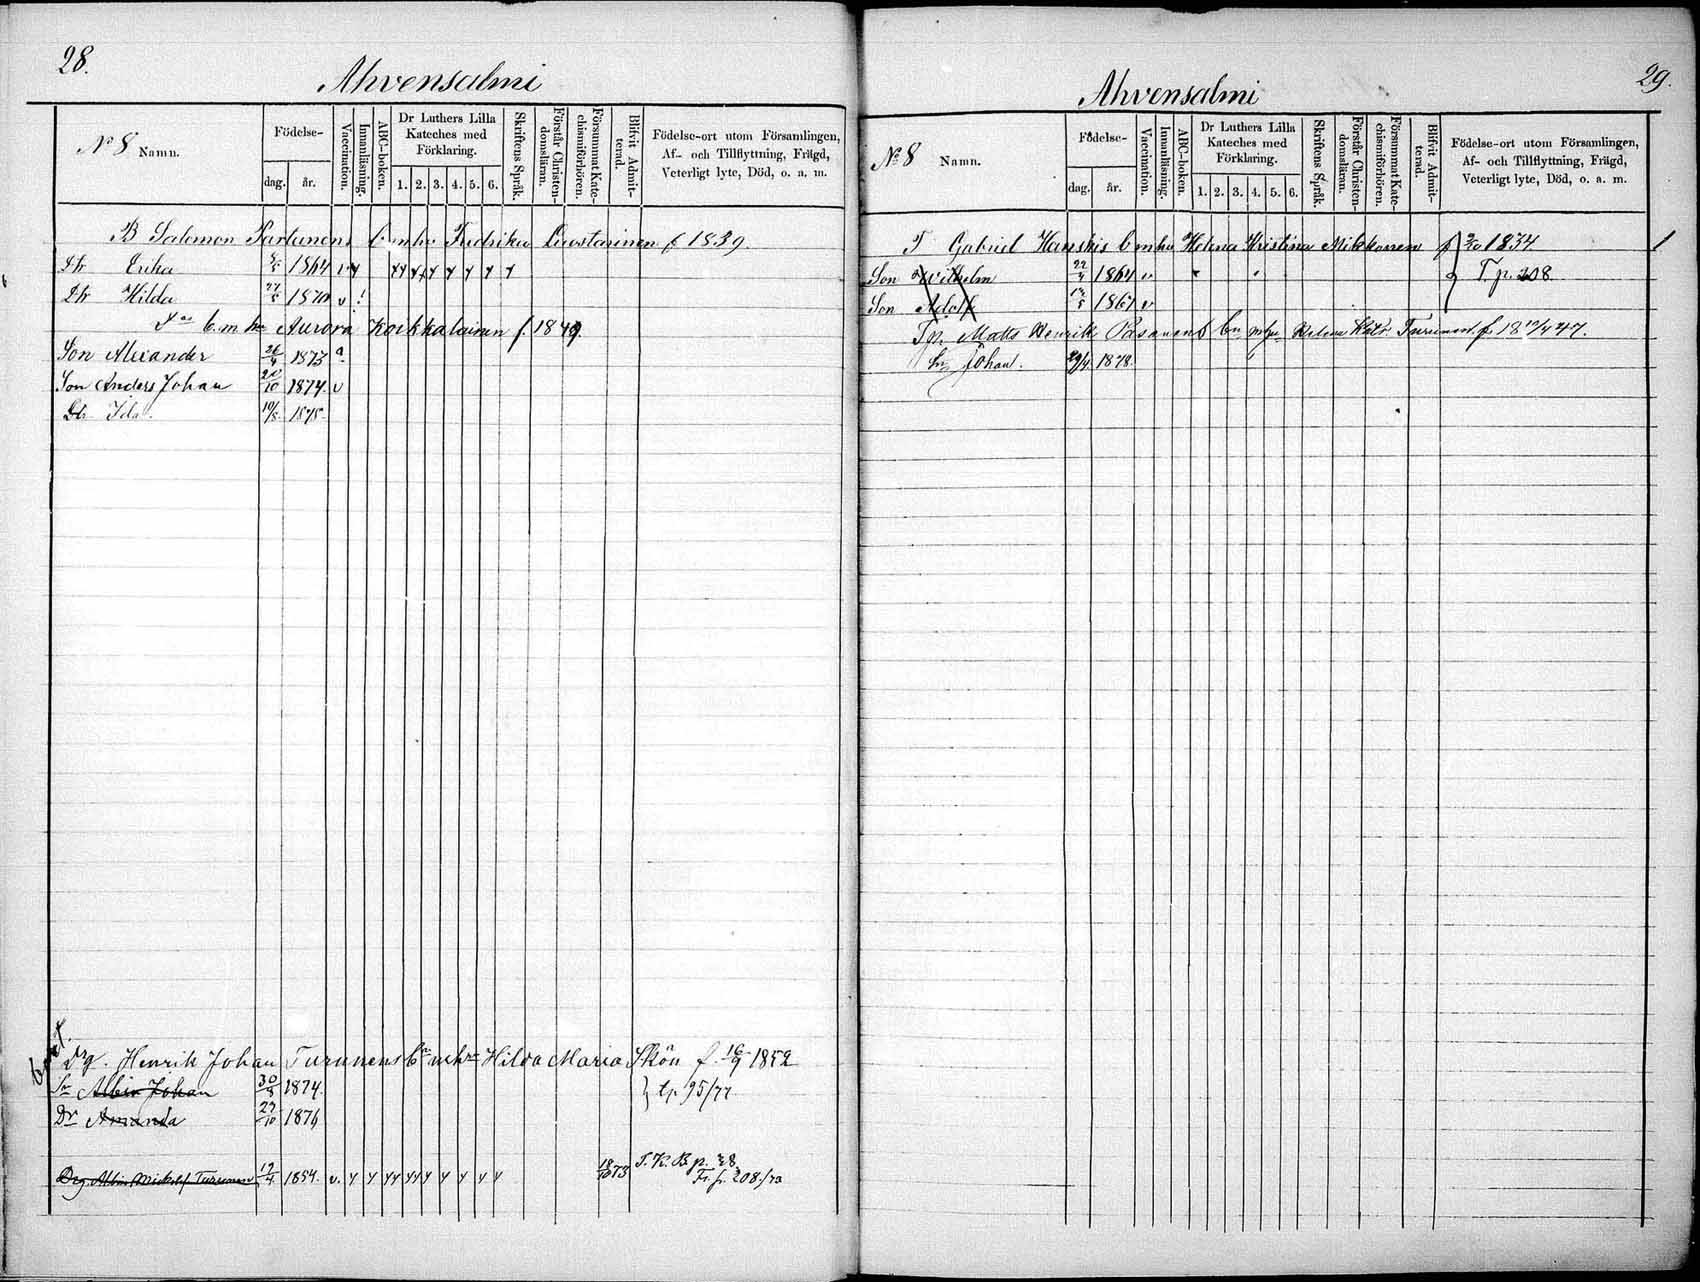 28.
Ahvensalmi
No 8 Namn.
Födelse-
dag. år.
Vaccination.
Innanläsning.
ABC-boken.
Dr Luthers Lilla
Kateches med
Förklaring.
1. 2. 3. 4. 5. 6.
Skriftens Språk.
Förstår Christen-
domsläran.
Försummat Kate-
chismiförhören.
Blifvit Admit-
terad.
Födelse-ort utom Församlingen,
Af- och Tillflyttning, Frägd,
Veterligt lyte, Död, o. a. m.
B Salomon Partanens Fredrika f 1839.
Dtr Erika 1864
Dtr Hilda 1870 v
Aurora f. 1849.
Son Alexander 26/4 1873
Son Anders Johan 20/10 1874. v
Dtr Ida. 10/5 1878
Drg. Henrik Johan Turunens Hilda Maria Skön f. 16/9 1852
Sn Albin Johan 30/8 1874. } tp 95/77
Dr Amanda 27/10 1876
Drg. Albin Turunen 12/4 1854. v. 18/10 73
208/
29.
Ahvensalmi
No 8 Namn.
Födelse-
dag. år.
Vaccination.
Innanläsning.
ABC-boken.
Dr Luthers Lilla
Kateches med
Förklaring.
1. 2. 3. 4. 5. 6.
Skriftens Språk.
Förstår Christen-
domsläran.
Försummat Kate-
chismiförhören.
Blifvit Admit-
terad.
Födelse-ort utom Församlingen,
Af- och Tillflyttning, Frägd,
Veterligt lyte, Död, o. a. m.
T Gabriel Hanskis Helena Kristina Mikkonen f 1834
Son Wilhelm 1864 v T p. 208.
Son Adolf 1867 v
Tp. Matts Henrik Pasanens Helena f. 47.
Sn Johan. 29/4. 1878.